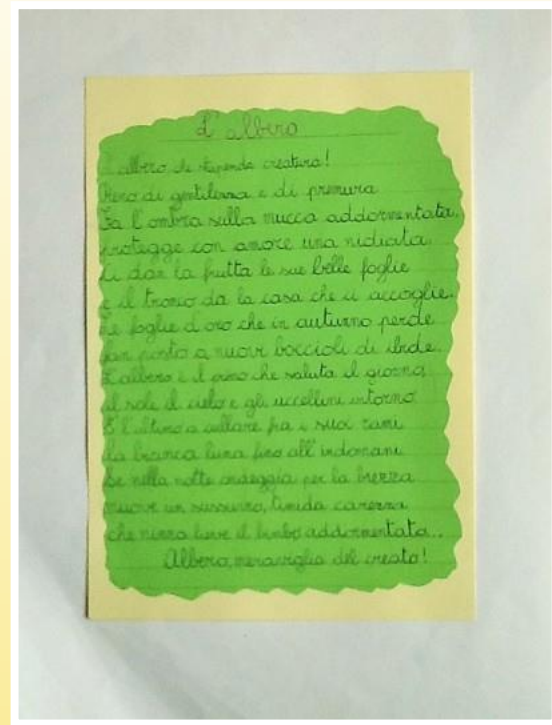 L'albero
L'albero che stupenda creatura!
Pieno di gentilezza e di premura
Fa l'ombra sulla mucca addormentata,
protegge con amore una nidiata.
Ci dan la frutta le sue belle foglie
e il tronco dà la casa che ci accoglie.
Le foglie d'oro che in autunno perde
fan posto a nuovi boccioli di
L'albero è il primo che saluta il giorno,
il sole il cielo e gli uccellini intorno
È l'ultimo a cullare fra i suoi rami
la bianca luna fino all'indomani
Se nella notte ondeggia per la brezza
muove un sussurro, timida carezza
che ninna lieve il bimbo addormentata..
Albero, meraviglia del creato!